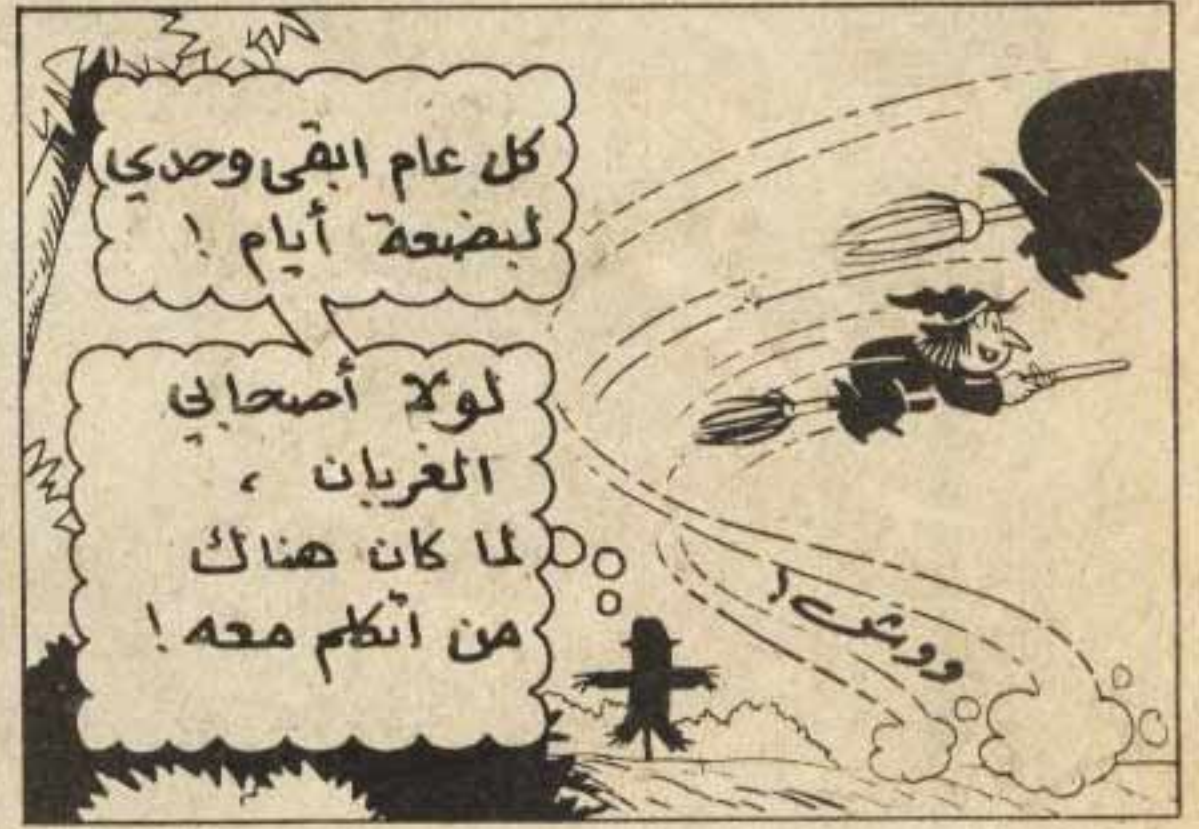 كل عام ابقى وحدي
لبضعة أيام !
لولا أصحابي
الغربان ،
لما كان هناك
من أتكلم معه !
ووش !